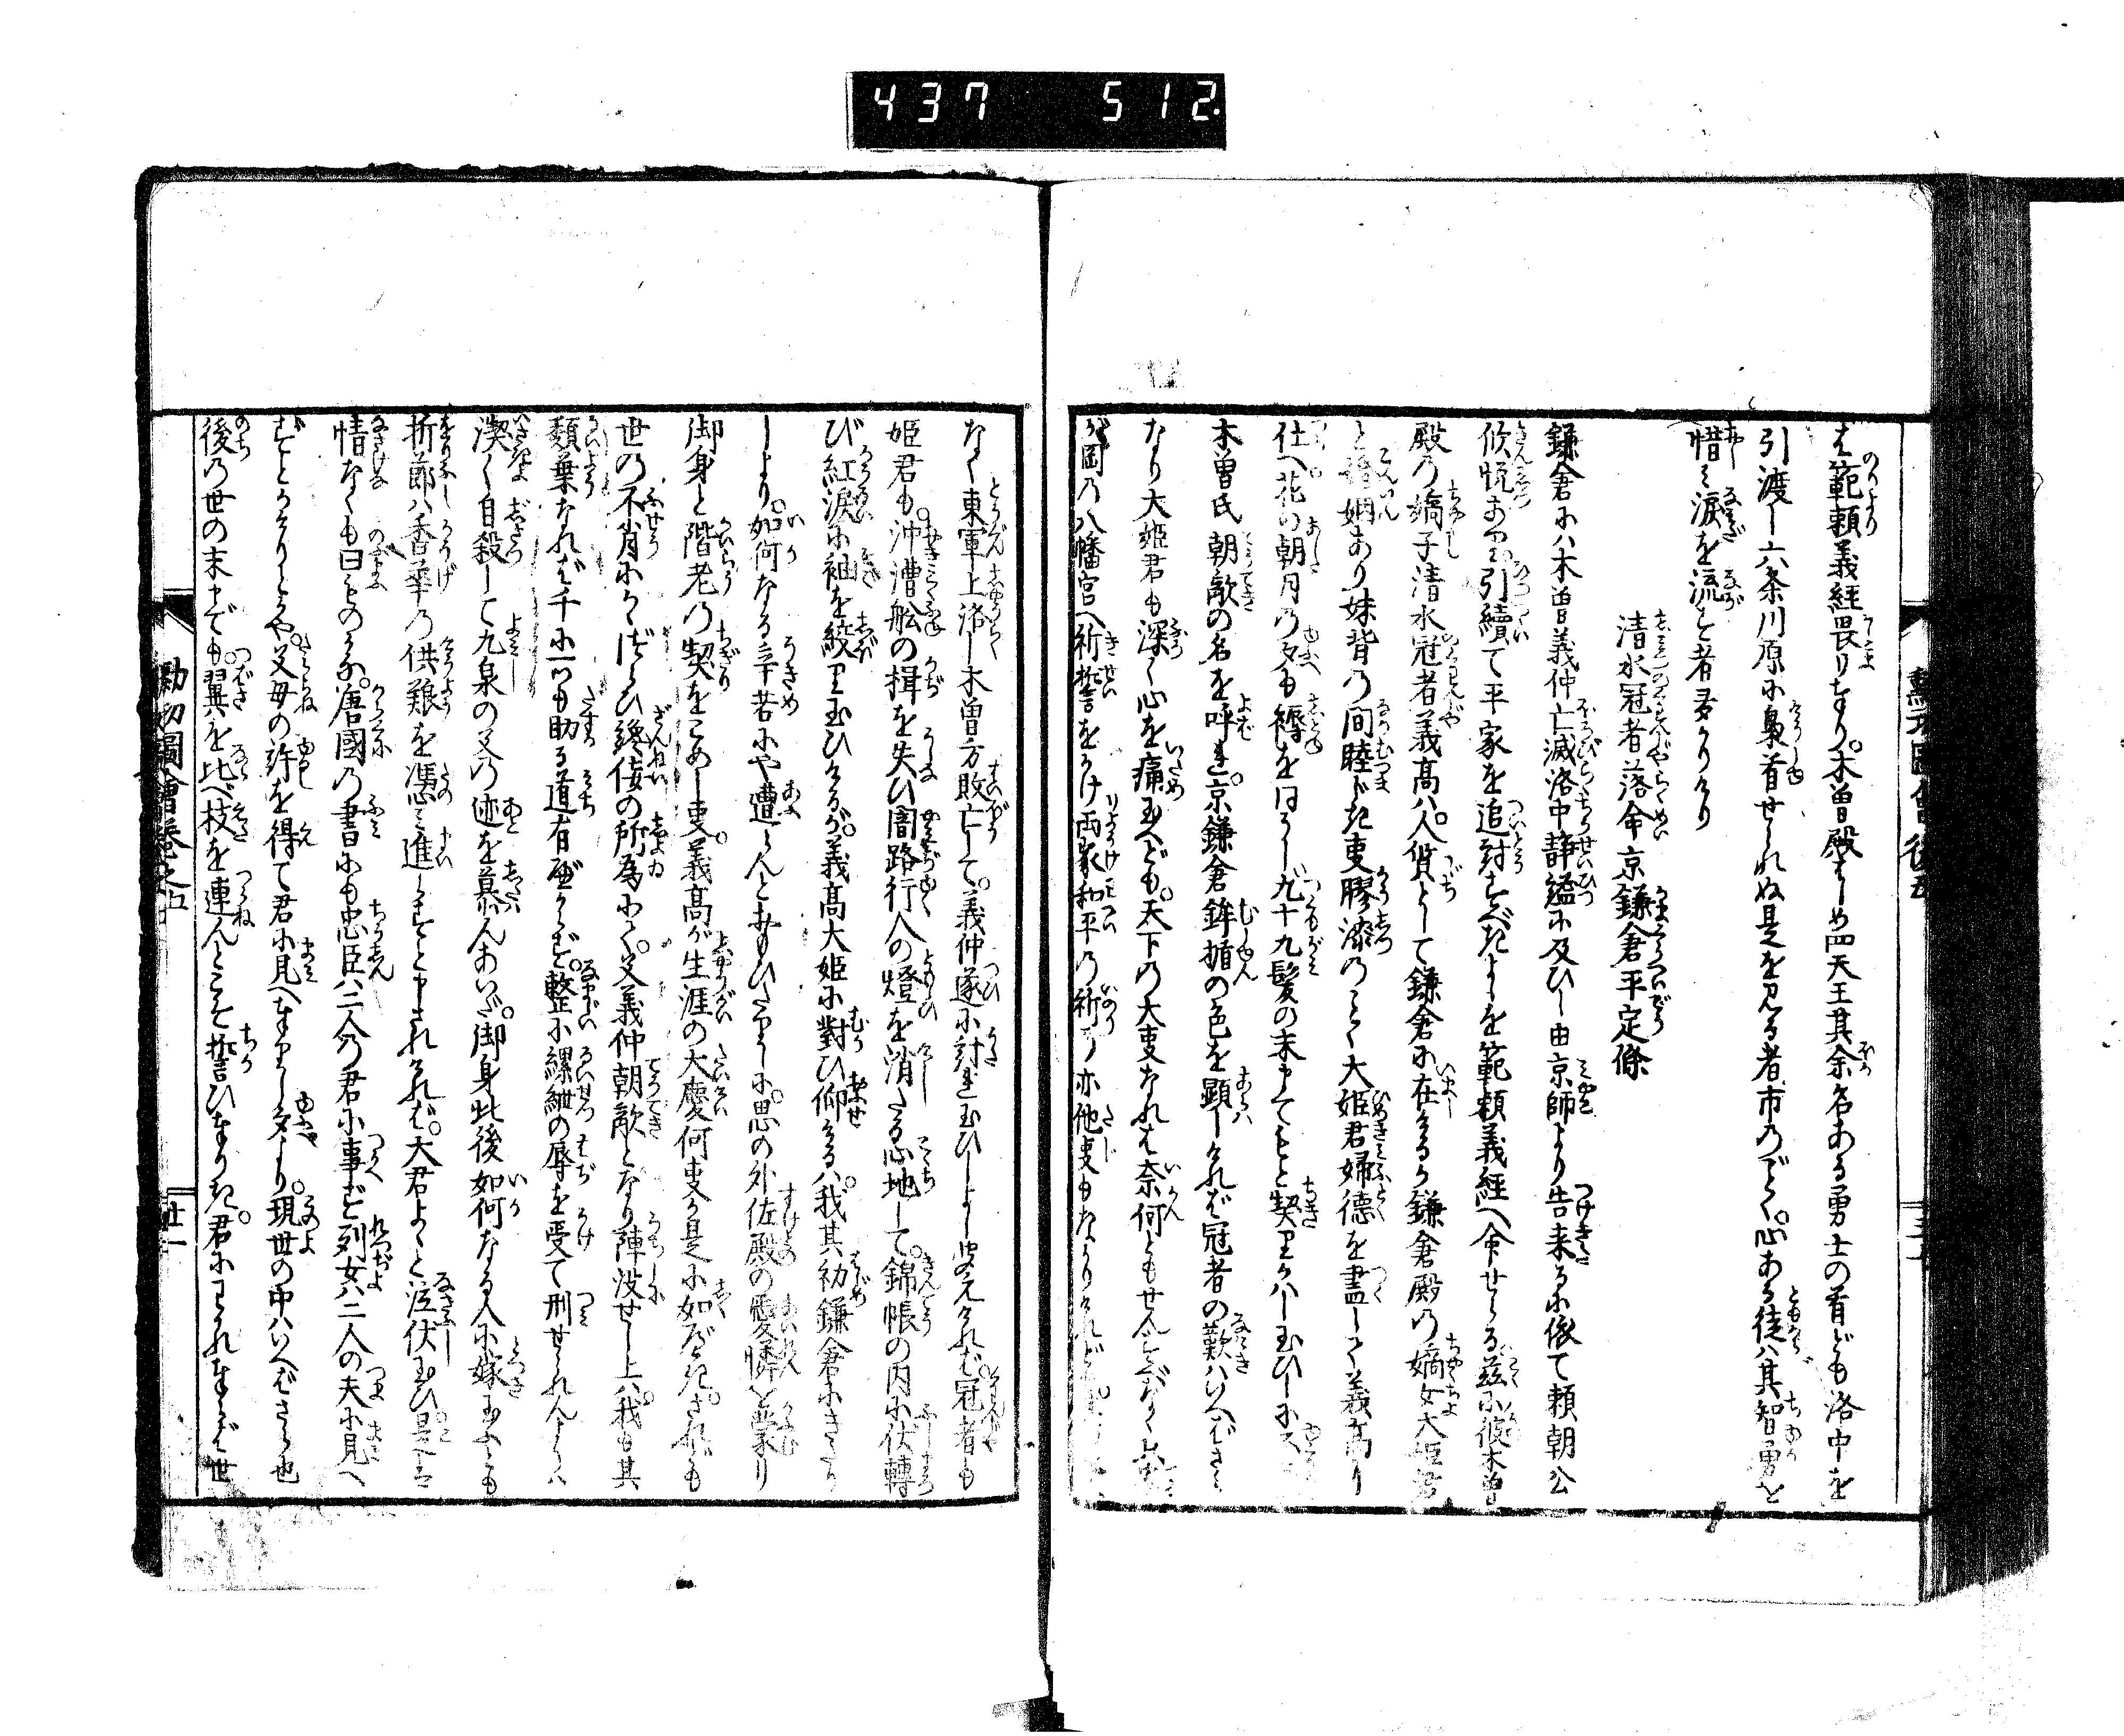 437 512
ば範頼義経畏りなり。木曽殿はじめ四天王其余名ある勇士の首ども洛中を
引渡し六条川原に梟首せられぬ是を見る者市のごとく。心ある徒ハ其智勇を
惜み涙を流す者多かりけり
清水冠者落命京鎌倉平定條
鎌倉にハ木曽義仲亡滅洛中静謐に及びし由京師より告来るに依て頼朝公
欣悦あり引續て平家を追討すべきよしを範頼義経へ命せらる茲に彼木曽
殿の嫡子清水冠者義高ハ人質として鎌倉に在けるが鎌倉殿の嫡女大姫君
と婚姻あり妹背の間睦じき事膠漆のごとく大姫君婦徳を盡して義高に
仕へ花の朝月の夕も褥を同うし九十九髪の末までもと契りかハし玉ひしに
木曽氏朝敵の名を呼れ。京鎌倉鉾楯の色を顕しけれバ冠者の歎ハいへばさら
なり大姫君も深く心を痛玉へども。天下の大事なれば奈何ともせんすべなく
が岡の八幡宮へ祈誓をかけ両家和平の祈り亦他事もなかりけれど
なく東軍上洛し木曽方敗亡して。義仲遂に討れ玉ひしよし聞えけれバ。冠者も
姫君も。沖漕舩の揖を失ひ闇路行人の燈を消たる心地して。錦帳の内に伏轉
び紅涙に袖を絞り玉ひけるが。義高大姫に對ひ仰けるハ。我其初鎌倉にきたり
しより。如何なる辛苦にや遭らんとおもひたりしに。思の外佐殿の愛憐を蒙り
御身と階老の契をこめし事。義高が生涯の大慶何事か是に如べき。されども
世の不肖にかゝづらひ讒侫の所為にて。父義仲朝敵となり陣没せし上ハ。我も其
類葉なれバ千に一つも助る道有べからず。憖に縲紲の辱を受て刑せられんよりハ
潔く自殺して九泉の父の迹を慕んあいだ。御身此後如何なる人に嫁玉ふとも
折節ハ香華の供養を憑み進らすと申されけれバ。大君よゝと泣伏玉ひ是ハ
情なくも曰ものかな。唐國の書にも忠臣ハ二人の君に事ず列女ハ二人の夫に見へ
ずとかやりとや。父母の許を得て君に見へまゐらせしより。現世の中ハいへばさら也
後の世の末までも。翼を比べ枝を連んとこそ誓ひまゐりき。君にわかれまゐらせ世
圖會巻之五
廿一